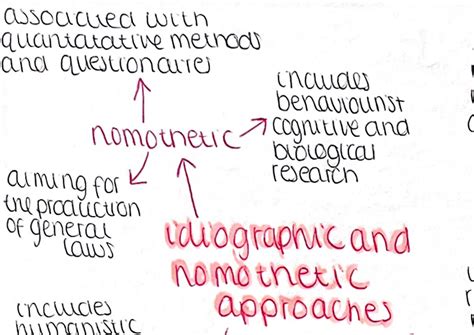 associated with
quantatative methods
and questionaires
nomothetic
includes
behaviourist
cognitive and
biological
research
aiming for
the production
of general
laws
idiographic and
nomothetic
approaches
includes
humanistic